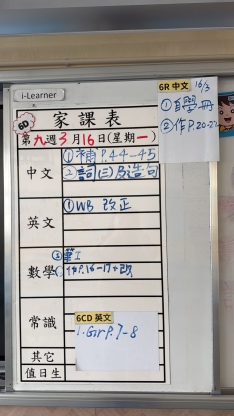 i-Learner
6D
家課表
第九週3月16日(星期一)
6R 中文 16/3
①自學冊
②作P.20-22
中文
①補P.44-45
②詞(三)及造句
英文
①WB 改正
數學
作P.16-17+改
常識
6CD 英文
1. Gr P.7-8
其它
值日生